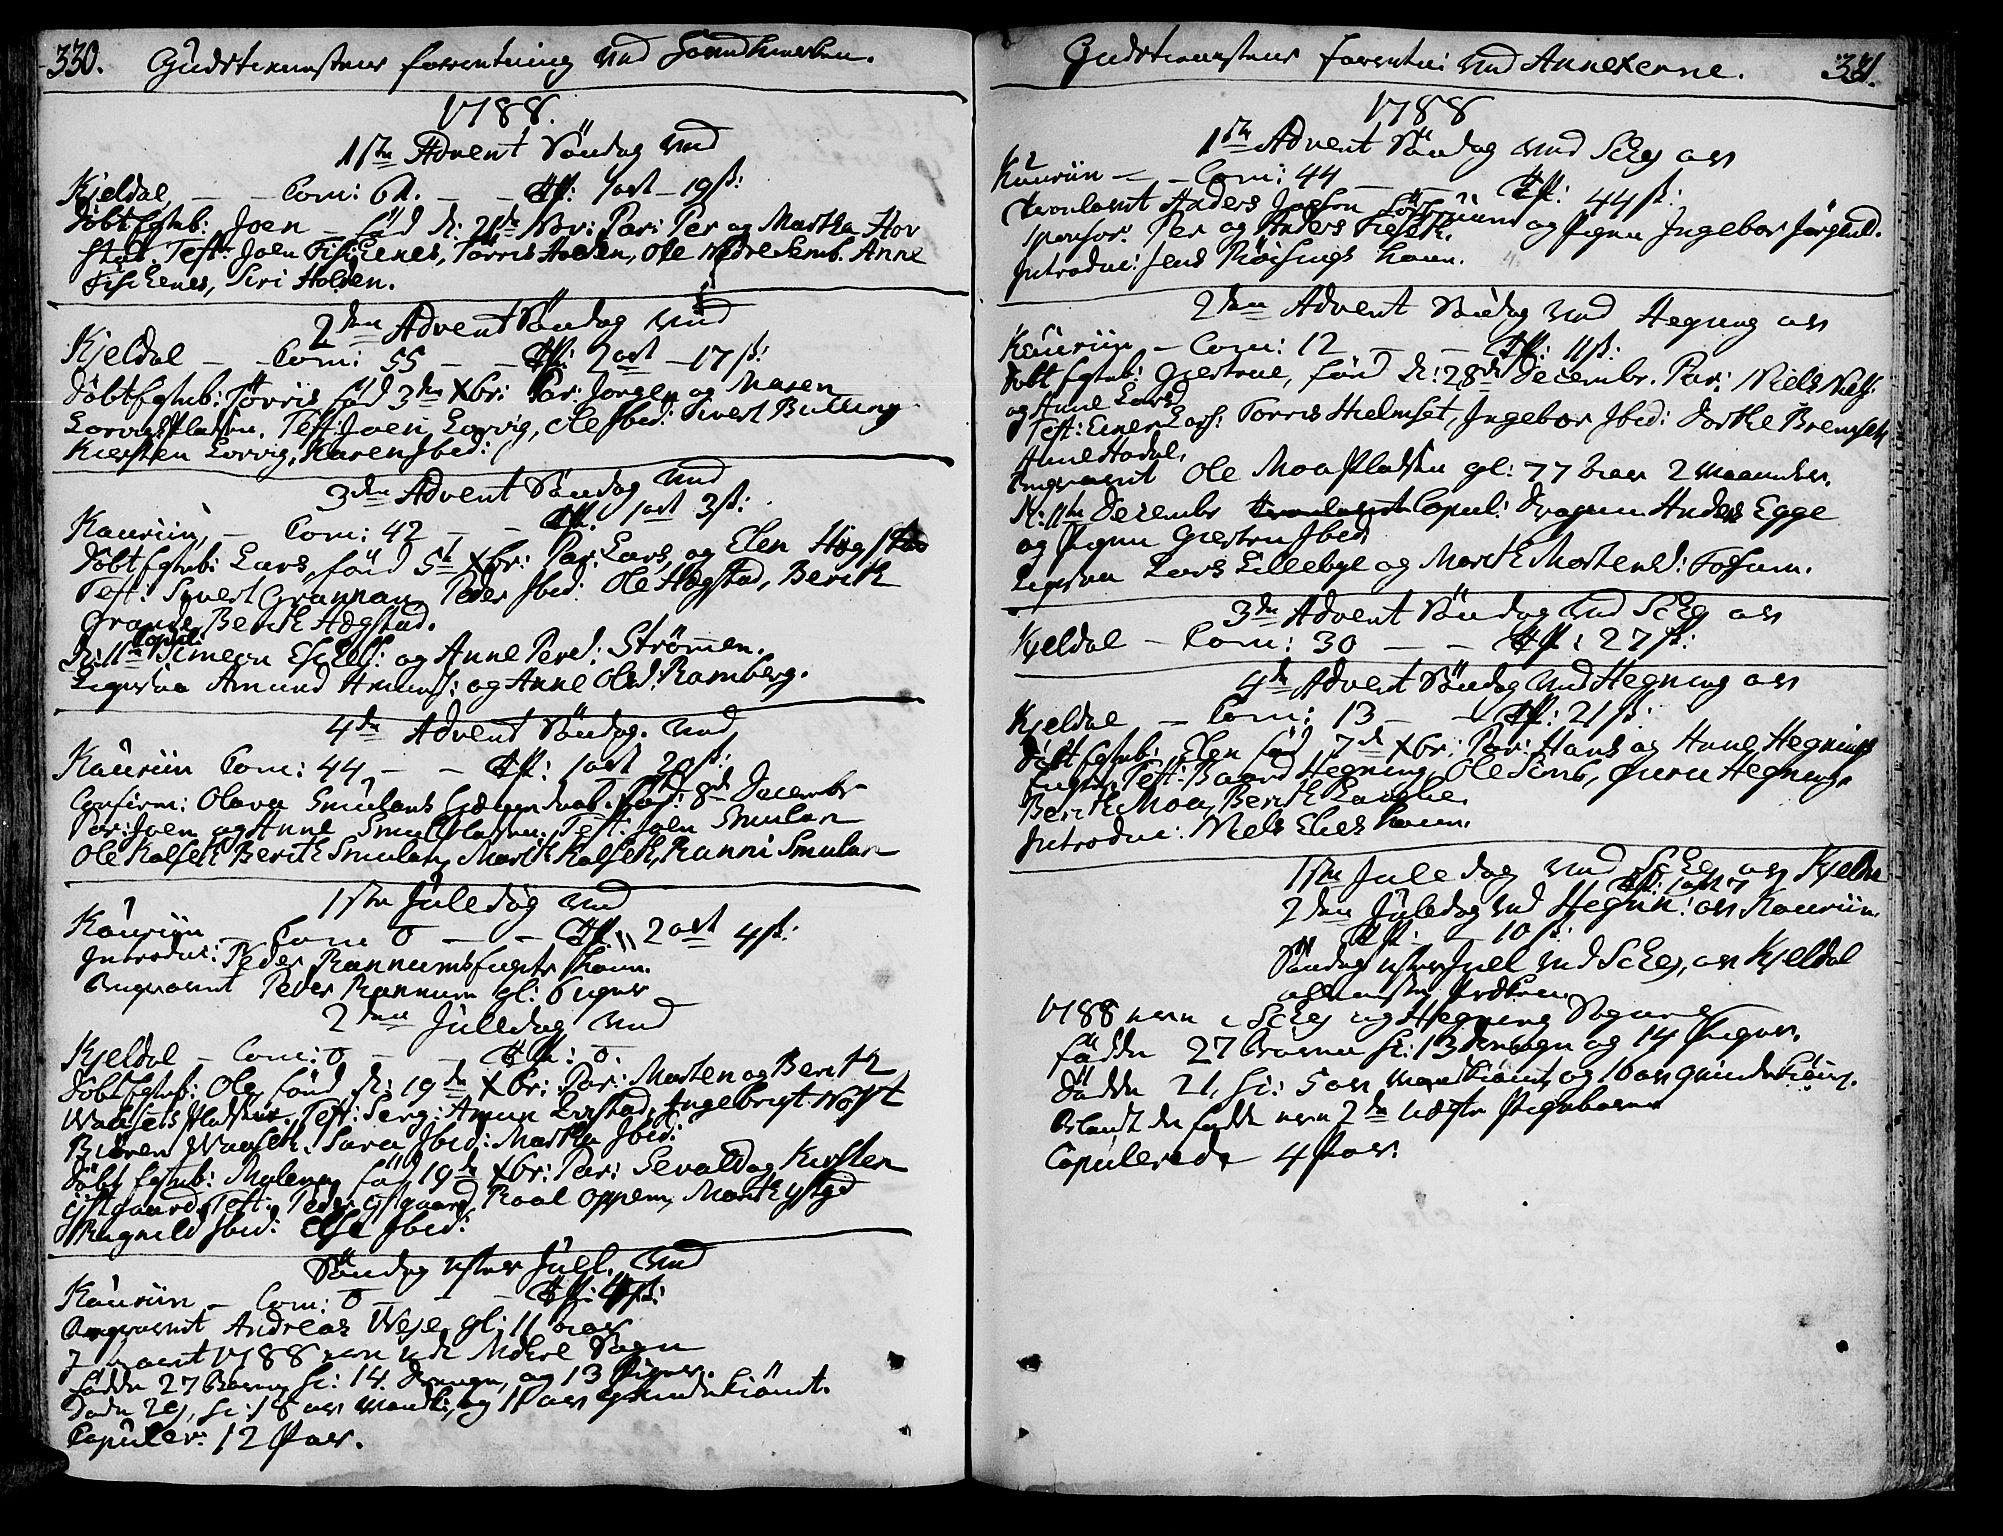 330. Gudstienestens forrentning ved
1788.
1ste Advent Söndag ved
Kjeldal, - - Com: 62. - - Off: 1 ort - 19 s:
Döbt Egteb: Joen - föd d: 21de Nvbr: Par: Per og Martha Hov
stad. Test: Joen Fiskenes, Törris Holden, Ole Nedre Semb. Anne
Fiskenes, Siri Holden.
2den Advent Söndag ved
Kjeldal - - Com: 55 - - Off: 2 ort - 17 s:
Döbt Egteb: Törris föd 3den Xbr: Par: Jorgen og Maren
Lorvigspladsen. Test: Joen Lorvig, Ole Ibid: Sivert Bulling
Kiersten Lorvig, Karen Ibid:
3den Advent Söndag ved
Kauriin, - Com: 42 - - Off: 1 ort 3 s:
Döbt Egteb: Lars, föd 5te Xbr: Par: Lars og Elen Hegstad
Test: Sivert Grannan Peder Ibid: Ole Hegstad, Berith
Grande, Berith Hegstad.
D: 11te Copul: Simeon Eskels: og Anne Persd: Strömen.
Ligesaa Amund Amunds: og Anne Olsd: Ramberg.
4de Advent Söndag. ved
Kauriin Com: 44 - - Off: 1 ort 20 s:
Confirm: Olava Smulans Föd: 8de Decembr
Par: Joen og Anne Smulpladsen. Test: Joen Smulan
Ole Kalseth Berith Smulan, Marith Kalseth, Ranni Smulan
1ste Juledag ved
Kauriin - Com 0 - - Off: 2 ort 4 s:
Introduc: Peder Rannums Kone.
Begravet Peder Rannum gl: 6 uger
2den Juledag ved
Kjeldal - Com: 0 - - Off: 0.
Döbt Egteb: Ole, föd d: 19de Xbr: Par: Morten og Berith
Wadseths Pladsen. Test: Serg: Amun Lorstad, Ingebrigt Nöst
Biören Wadseth. Sara Ibid: Martha Ibid:
Döbt Egteb: Malena föd 19de Xbr: Par: Sevald og Kirsten
Ystgaard, Test: Peder Ystgaard, Roal Oppem, Marith Ystgd
Ragnild Ibid: Else Ibid:
Söndag efter Juel. ved
Kauriin - Com: 0 - - Off:
Begravet Andreas Weje, gl: 11 aar
I aaret 1788 ere udi Meere Sogn
födde 27 Börn, sc: 14 Drenge, og 13 Piger.
Döde 29, sc: 18 av Mandk:, og 11 av Qvindekiönt.
Copuler: 12 Par.
Gudstienestens forretn: ved Annexerne. 331.
1788
1ste Advent Söndag ved Schej av
Kauriin - - Com: 44 - - Off: 44 s:
Trolovet Anders Joesen og Pigen Ingebor Jörgensd.
sponsor: Per og Anders
Introduc: Jens Röisings Kone.
2den Advent Söndag ved Hegning av
Kauriin - Com: 12 - - Off: 11 s:
Döbt Egteb: Giertrue, föd d: 28de Decembr. Par: Niels
og Anne Larsd
Test: Einer Lars: Torris Hielmset, Ingebor Ibid: Dorthe Bremseth
Anne Hodal.
Begravet Ole Moa Pladsen gl: 77 aar 2 Maaneder.
D: 11te Decembr Trolovet Copul: Dragun Anders Egge
og Pigen Giertru Ibid:
Ligesaa Lars Lillebye og Marith Mortensd: Fossum.
3den Advent Söndag ved Schej av
Kjeldal - Com: 30 - - Off: 27 s:
4de Advent Söndag ved Hegning av
Kjeldal - Com: 13 - - Off: 21 s:
Döbt Egteb: Elen föd 7de Xbr: Par: Hans og Anne Hegnings
Test: Baard Hegning, Ole Semb, Hegning,
Berith Moa, Berith
Introduc: Niels Elies Kone.
1ste Juledag ved Schej av Kjeldal
Off: 1 ort 7
2den Juledag ved Hegnin: av Kauriin
Off: - 10 s:
Söndag efter Juel ved Schej, av Kjeldal
1788 ere i Schej og Hegning Sogne
födde 27 Börn sc: 13 Drenge og 14 Piger.
Döde 21, sc: 5 av Mandkiönt, og 16 av Qvindekiön.
Blandt de födde ere 2de uægte Pigebörn
Copulerede 4 Par: